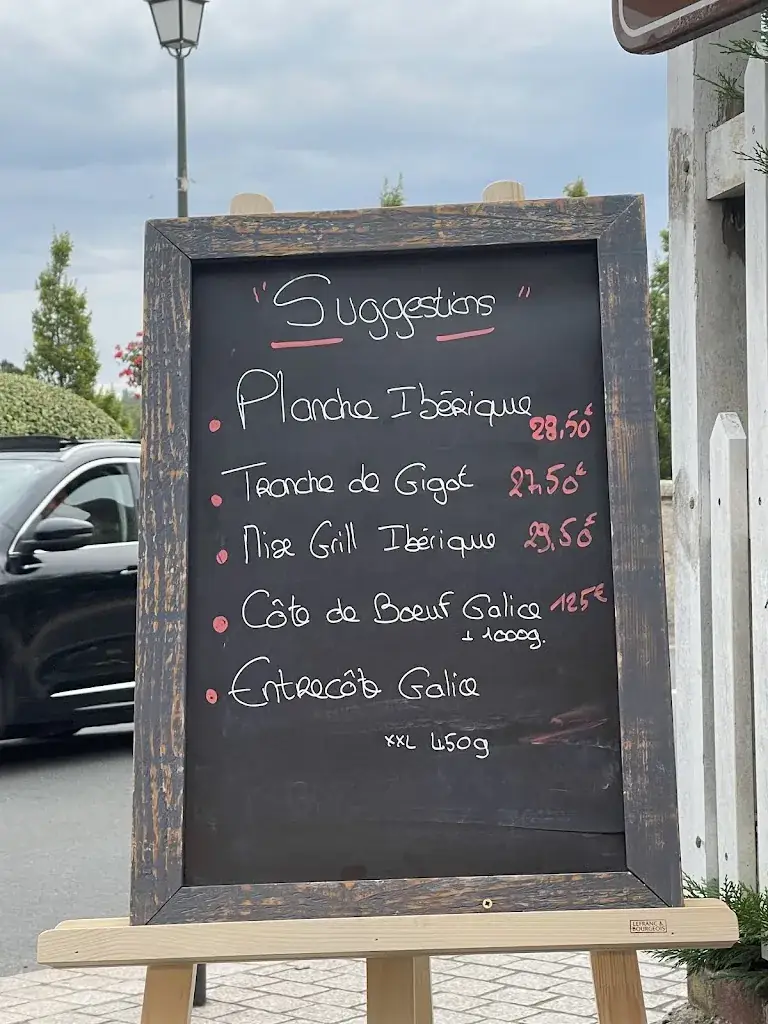 "Suggestions"
Planche Ibérique 28,50€
Tranche de Gigot 27,50€
Mixe Grill Ibérique 29,50€
Côte de Boeuf Galice 125€
± 1000g.
Entrecôte Galice
XXL 450g
LEFRANC &
BOURGEOIS